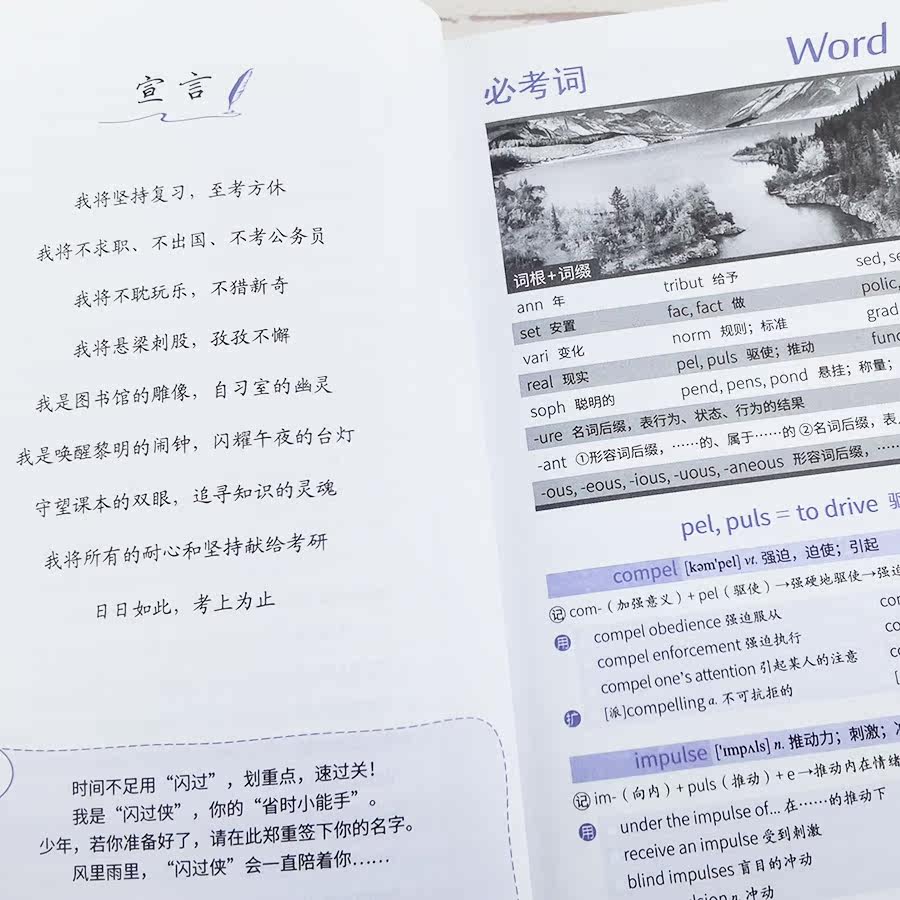 宣言
我将坚持复习，至考方休
我将不求职、不出国、不考公务员
我将不耽玩乐，不猎新奇
我将悬梁刺股，孜孜不懈
我是图书馆的雕像，自习室的幽灵
我是唤醒黎明的闹钟，闪耀午夜的台灯
守望课本的双眼，追寻知识的灵魂
我将所有的耐心和坚持献给考研
日日如此，考上为止
时间不足用“闪过”，划重点，速过关！
我是“闪过侠”，你的“省时小能手”。
少年，若你准备好了，请在此郑重签下你的名字。
风里雨里，“闪过侠”会一直陪着你……
Word
必考词
词根+词缀
ann 年 tribut 给予 sed,
set 安置 fac, fact 做 polic,
vari 变化 norm 规则；标准 grad
real 现实 pel, puls 驱使；推动
soph 聪明的 pend, pens, pond 悬挂；称量；
-ure 名词后缀，表行为、状态、行为的结果
-ant ①形容词后缀，……的、属于……的 ②名词后缀，表
-ous, -eous, -ious, -uous, -aneous 形容词后缀，……
pel, puls = to drive
compel [kəm'pel] vt. 强迫，迫使；引起
记 com-（加强意义）+ pel（驱使）→强硬地驱使→强迫
用 compel obedience 强迫服从
compel enforcement 强迫执行
compel one's attention 引起某人的注意
扩 [派]compelling a. 不可抗拒的
impulse ['ɪmpʌls] n. 推动力；刺激；
记 im-（向内）+ puls（推动）+ e→推动内在情绪
用 under the impulse of... 在……的推动下
receive an impulse 受到刺激
blind impulses 盲目的冲动
n. 冲动